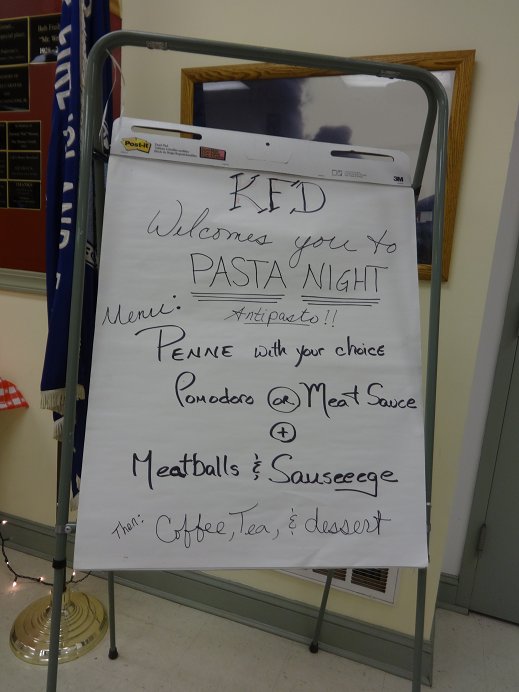 Post-it
3M
K.F.D
Welcomes you to
PASTA NIGHT
Menu:
Antipasto!!
PENNE with your choice
Pomodoro OR Meat Sauce
+
Meatballs & Sauseeege
Then: Coffee, Tea, & dessert